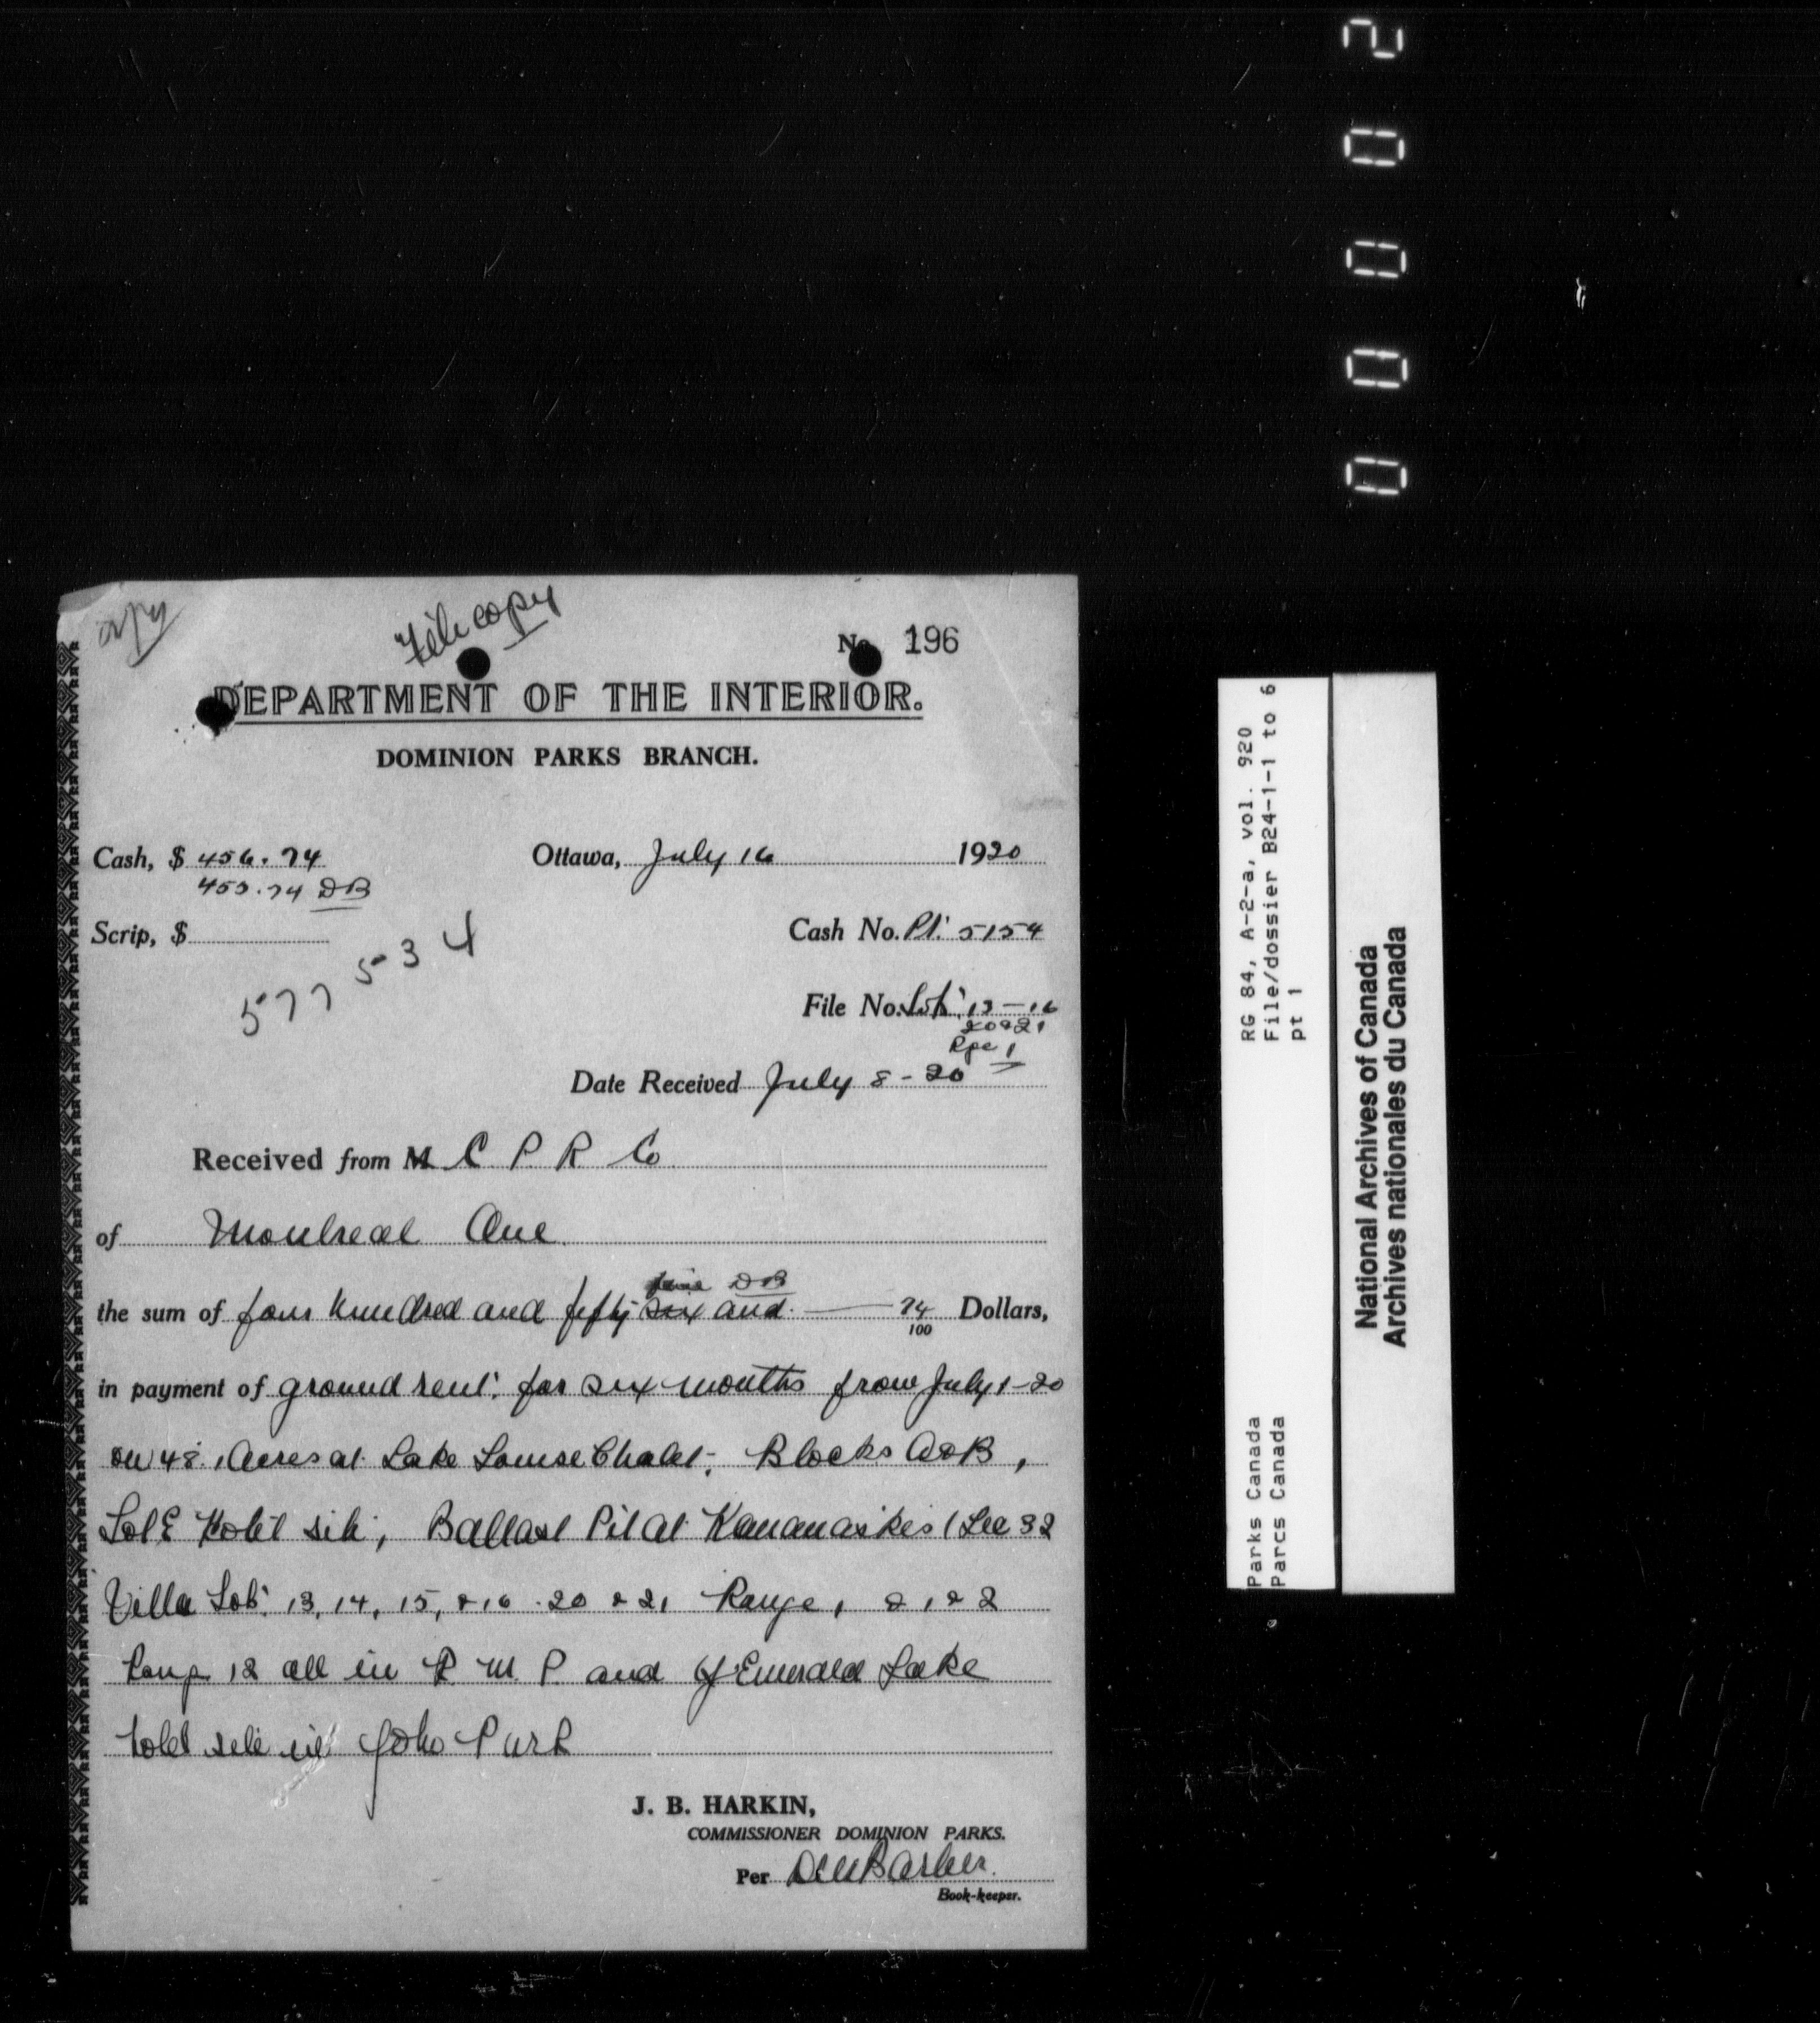 copy
File copy
No. 196
DEPARTMENT OF THE INTERIOR.
DOMINION PARKS BRANCH.
Cash, $ 456.74
Ottawa, July 16 1920
455.74 DB
Scrip, $
577534
Cash No. Pt. 5154
File No. Lots 13-16
20&21
Rge 1
Date Received July 8-20
Received from M C P R Co
of Montreal Que
five DB
the sum of four hundred and fifty six and 74/100 Dollars,
in payment of ground rent for six months from July 1-20
on 48. Acres at Lake Louise Chalet, Blocks A&B,
Lot E Hotel site, Ballast Pit at Kananaskis (Sec 32
Villa Lots 13, 14, 15, & 16. 20 & 21 Range 1 & 1 & 2
Range 12 all in R. M. P. and of Emerald Lake
hotel site in Yoho Park
J. B. HARKIN,
COMMISSIONER DOMINION PARKS.
Per Barber.
Book-keeper.
00002
RG 84, A-2-a, vol. 920
File/dossier B24-1-1 to 6
pt 1
Parks Canada
Parcs Canada
National Archives of Canada
Archives nationales du Canada